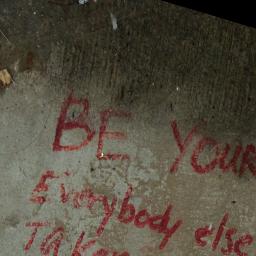 BE YOUR
Everybody else
TAKen